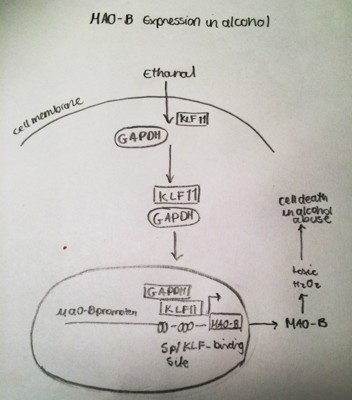 MAO-B Expression in alcohol
Ethanal
cell membrane
KLF11
GAPDH
KLF11
GAPDH
cell death
in alcohol
abuse
toxic
H2O2
GAPDH
KLF11
MAO-B promoter
MAO-B
MAO-B
Sp/KLF-binding
Site